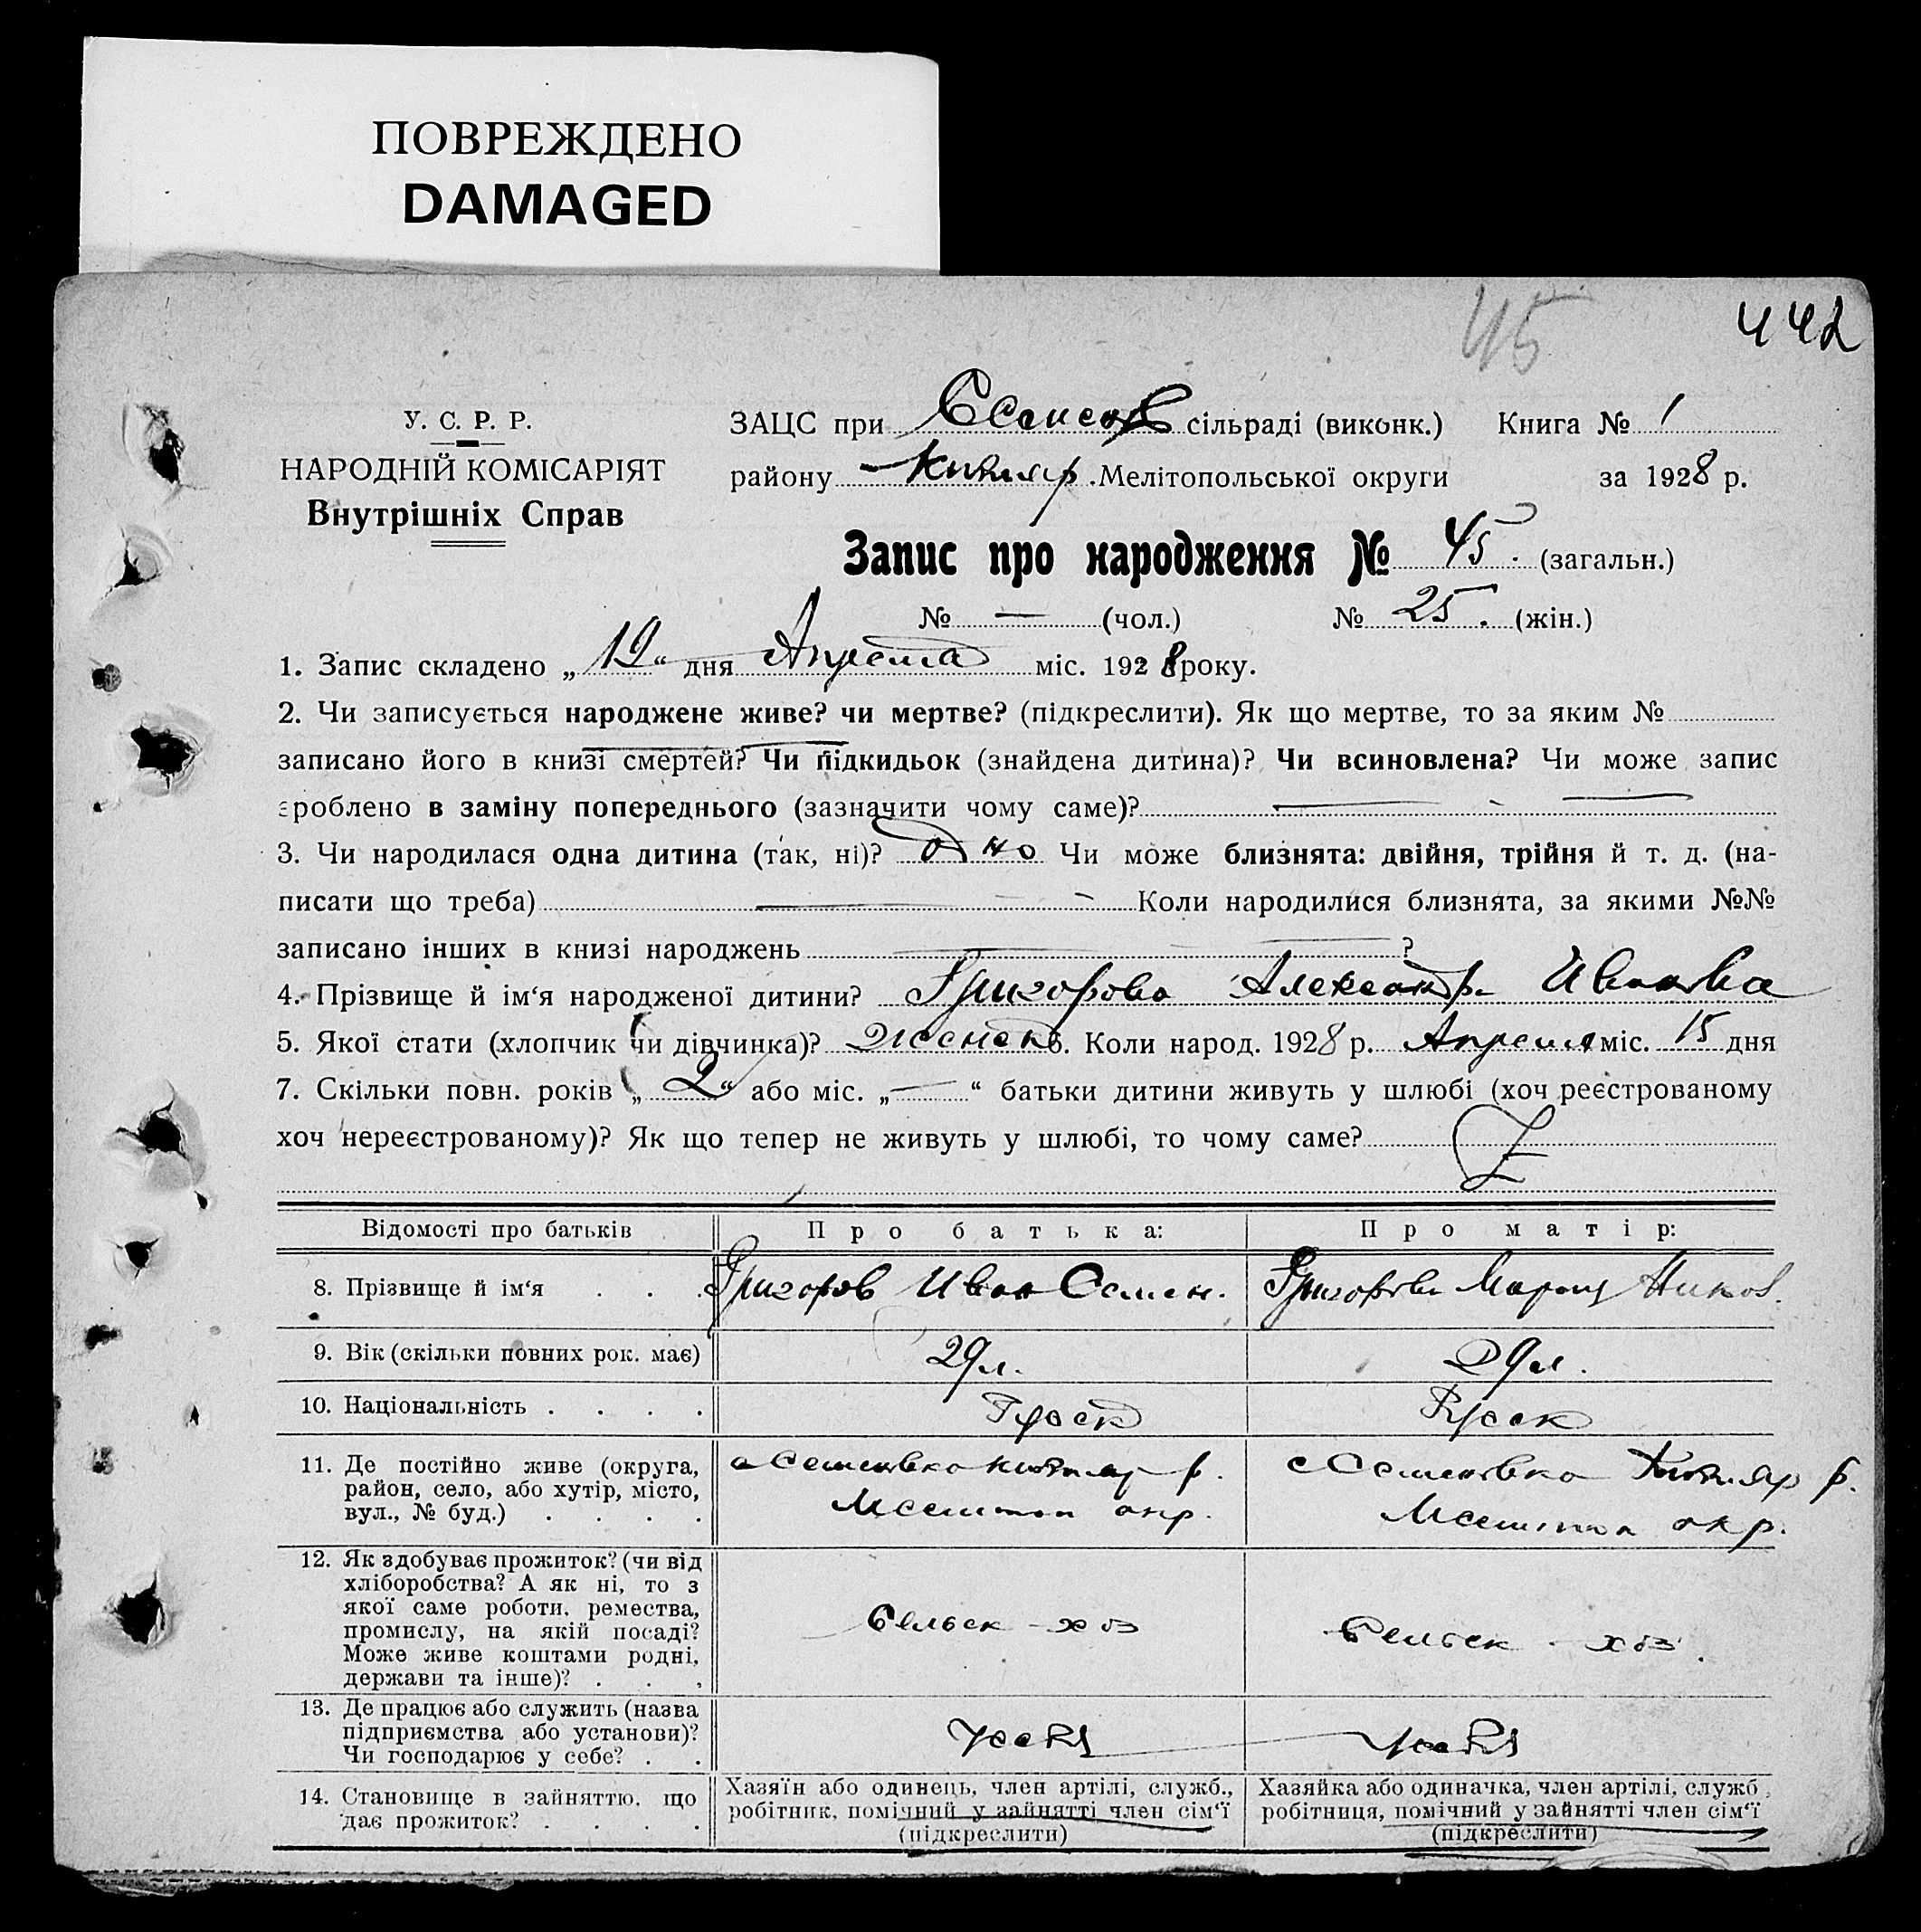 ПОВРЕЖДЕНО
DAMAGED
45
442
У. С. Р. Р.
НАРОДНІЙ КОМІСАРІЯТ
Внутрішніх Справ
ЗАЦС при сільраді (виконк.) Книга № 1
району Кизияр. Мелітопольської округи за 1928 р.
Запис про народження № 45. (загальн.)
№ — (чол.) № 25. (жін.)
1. Запис складено „19“ дня Апреля міс. 1928 року.
2. Чи записується народжене живе? чи мертве? (підкреслити). Як що мертве, то за яким №
записано його в книзі смертей? Чи підкидьок (знайдена дитина)? Чи всиновлена? Чи може запис
зроблено в заміну попереднього (зазначити чому саме)?
3. Чи народилася одна дитина (так, ні)? одно Чи може близнята: двійня, трійня й т. д. (на-
писати що треба) Коли народилися близнята, за якими №№
записано інших в книзі народжень ?
4. Прізвище й ім‘я народженої дитини? Григорова Александр. Иванова
5. Якої стати (хлопчик чи дівчинка)? женск 6. Коли народ. 1928 р. Апреля міс. 15 дня
7. Скільки повн. років „2“ або міс. „—“ батьки дитини живуть у шлюбі (хоч реєстрованому
хоч нереєстрованому)? Як що тепер не живуть у шлюбі, то чому саме?
Відомості про батьків Про батька: Про матір:
8. Прізвище й ім‘я . . . Григоров Иван Семен. Григорова Мария Никол.
9. Вік (скільки повних рок. має) 29 л. 29 л.
10. Національність . . . . Русск Русск
11. Де постійно живе (округа,
район, село, або хутір, місто,
вул., № буд.) . . . .
с Семеновка Кизияр р.
Мелитоп окр.
с Семеновка Кизияр р.
Мелитоп окр.
12. Як здобуває прожиток? (чи від
хліборобства? А як ні, то з
якої саме роботи, ремества,
промислу, на якій посаді?
Може живе коштами родні,
держави та інше)? . . .
Сельск - хоз
Сельск - хоз.
13. Де працює або служить (назва
підприємства або установи)?
Чи господарює у себе? . .
у себя
у себя
14. Становище в зайняттю, що
дає прожиток? . . . .
Хазяїн або одинець, член артілі, служб.,
робітник, помічний у зайнятті член сім‘ї
(підкреслити)
Хазяйка або одиначка, член артілі, служб.,
робітниця, помічний у зайнятті член сім‘ї
(підкреслити)